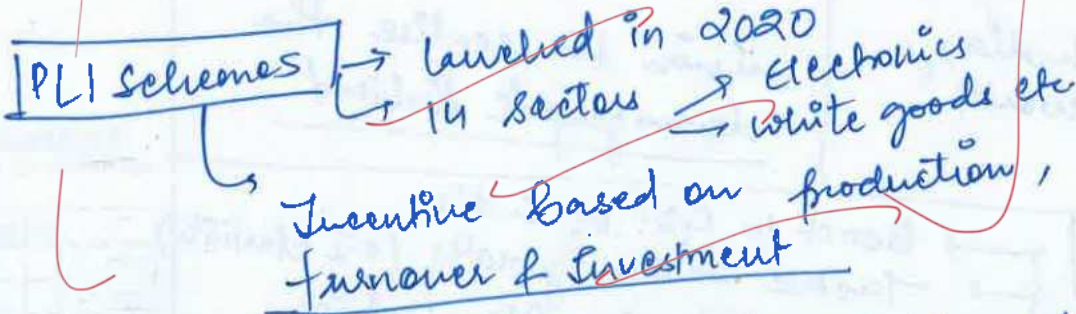 PLI Schemes → launched in 2020
→ 14 sectors → Electronics
→ white goods etc
Incentive based on production,
turnover & Investment